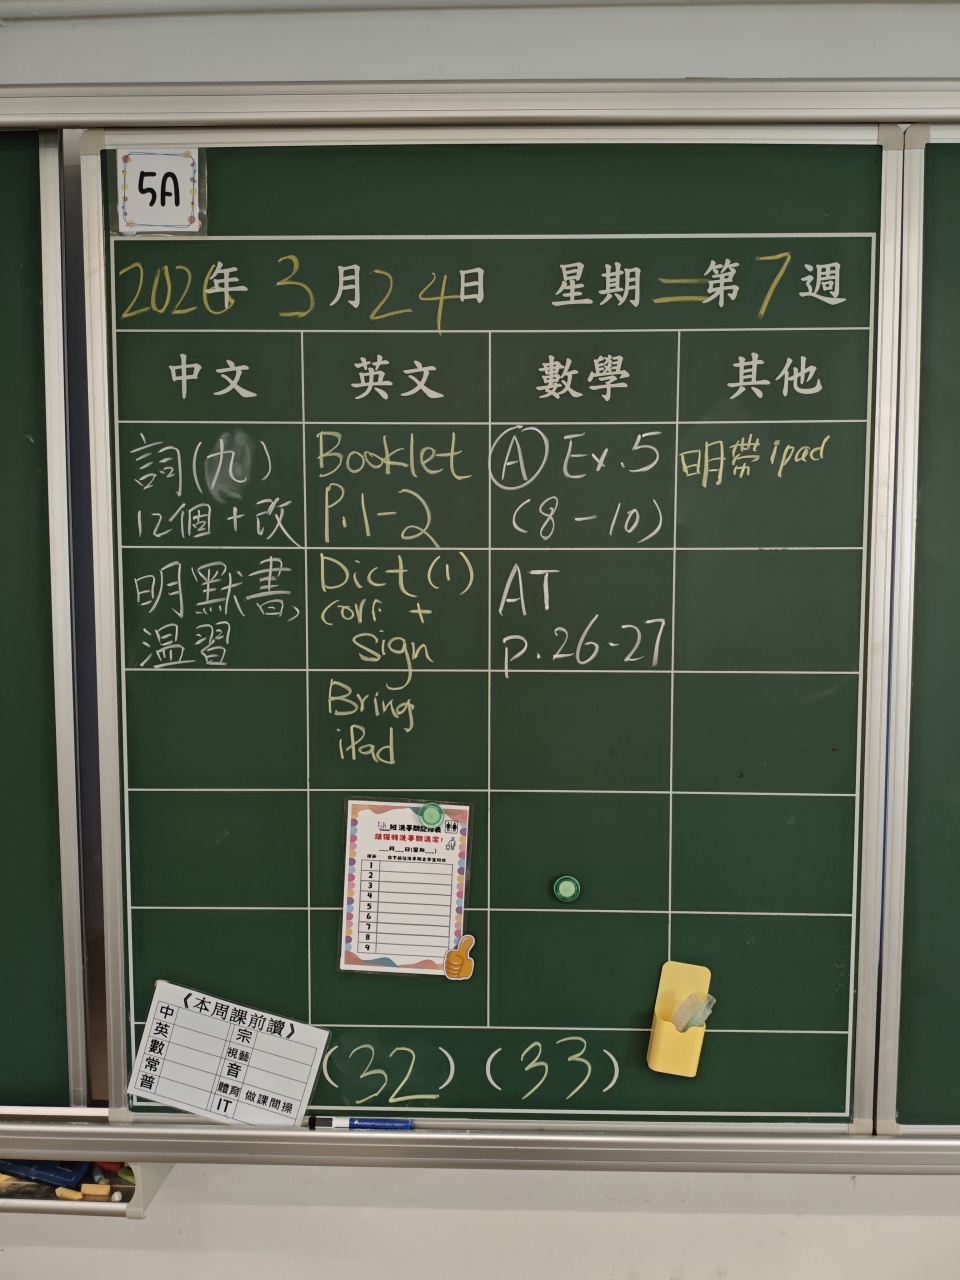 5A
2026年 3月24日 星期二 第7週
中文 英文 數學 其他
詞(九)
12個+改
Booklet
P.1-2
Ⓐ Ex.5
(8-10)
明帶ipad
明默書,
溫習
Dict (1)
corr. +
sign
AT
p.26-27
Bring
iPad
班洗手間記錄表
請保持洗手間清潔!
___月___日(星期___)
1
2
3
4
5
6
7
8
9
《本周課前讀》
中 宗
英 視藝
數 音
常 體育 做課間操
普 IT
(32) (33)